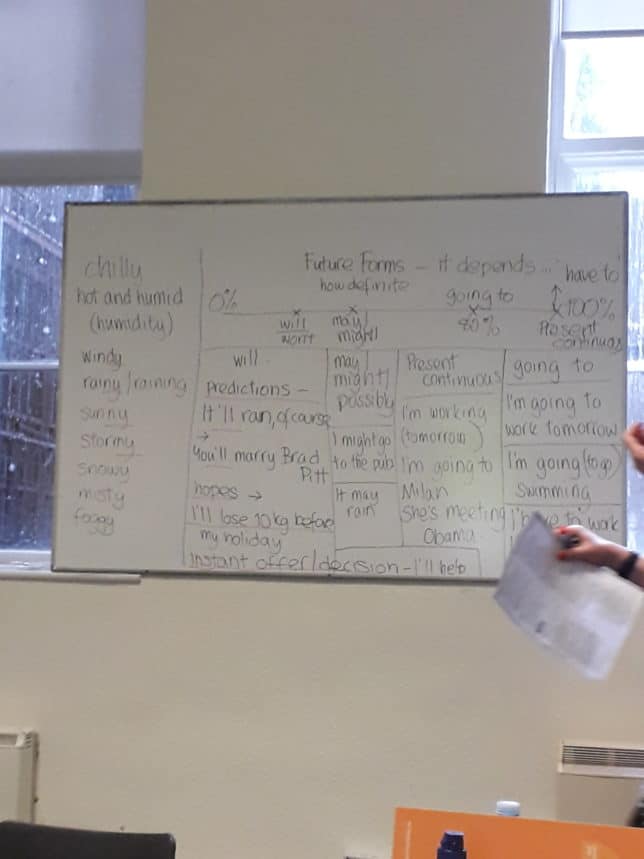 chilly
hot and humid
(humidity)
windy
rainy/raining
sunny
stormy
snowy
misty
foggy
Future Forms - it depends... "have to"
how definite
0%
going to
100%
will
won't
may/
might/
80%
Present
continuous
will
predictions -
It'll rain, of course
→
You'll marry Brad
Pitt
hopes →
I'll lose 10kg before
my holiday
Instant offer/decision - I'll help
may/
might/
possibly
I might go
to the pub
It may
rain
Present
continuous
I'm working
(tomorrow)
I'm going to
Milan
She's meeting
Obama
going to
I'm going to
work tomorrow
I'm going (to go)
swimming
to work